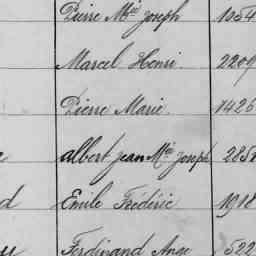 Pierre Mie Joseph 1054
Marcel Henri 2209
Pierre Marie 1426
e Albert Jean Mie Joseph 285
d Emile Frédéric 1918
Ferdinand Ange 522